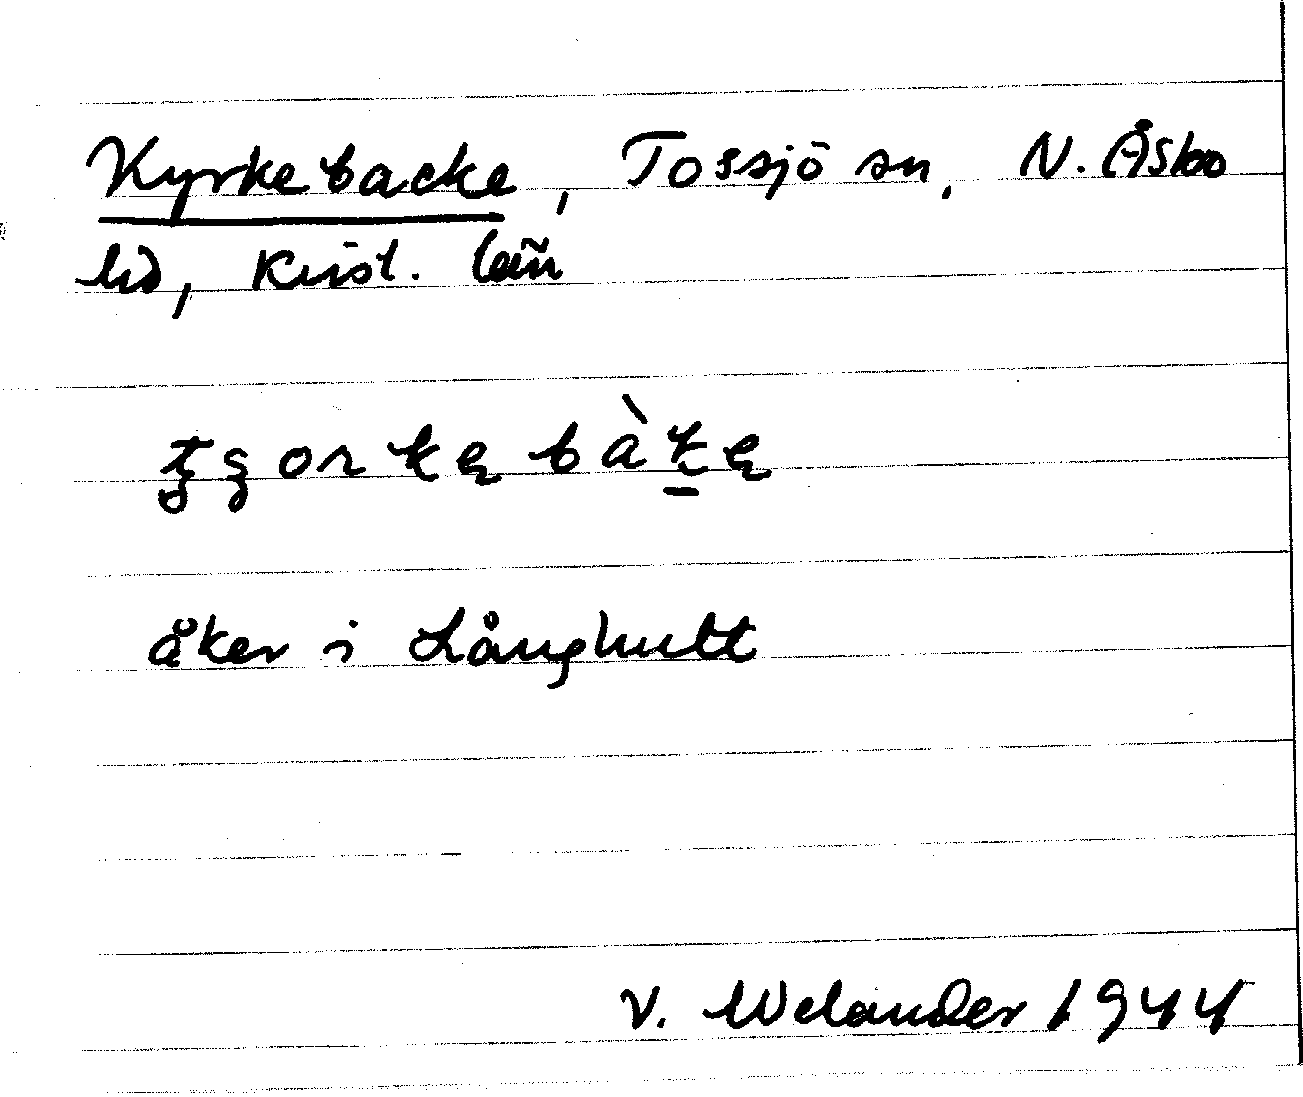 Kyrkebacke, Tossjö sn, N. Åsbo
hd, Krist. län
åker i Långhult
V. Welander 1944